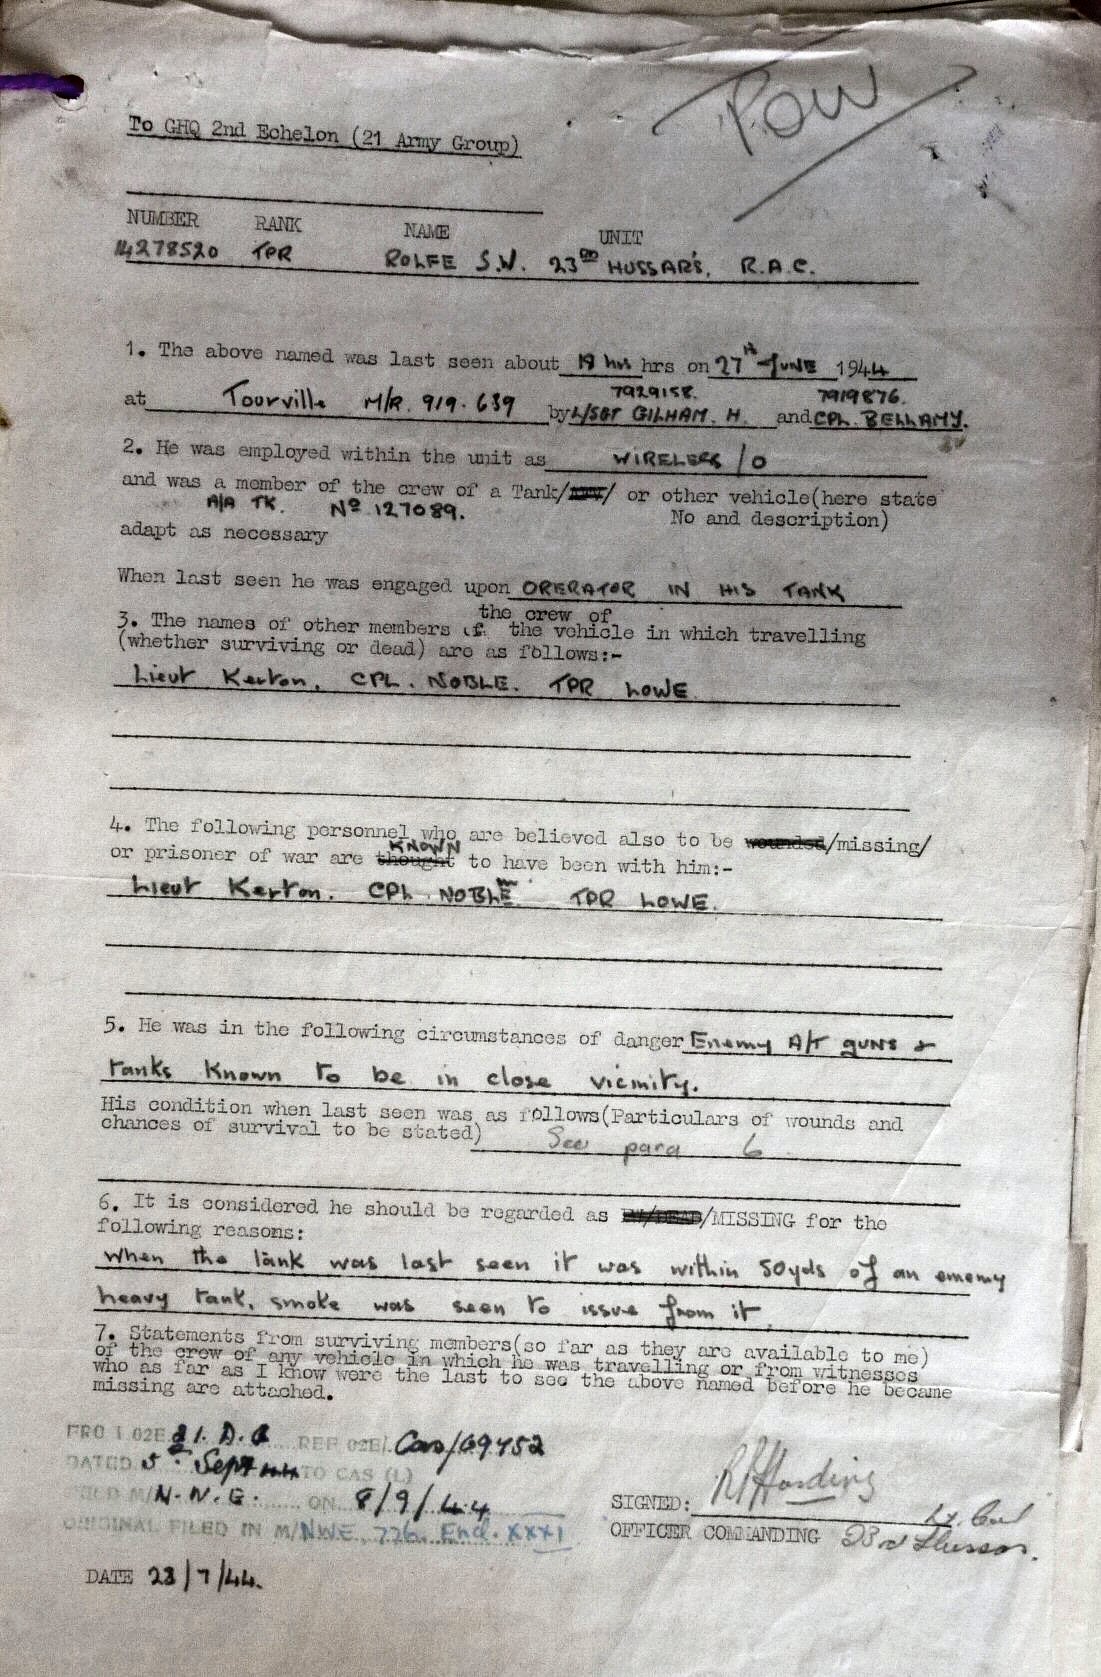 P.O.W
To GHQ 2nd Echelon (21 Army Group)
NUMBER RANK NAME UNIT
14278520 TPR ROLFE S.W. 23RD HUSSAR'S, R.A.C.
1. The above named was last seen about 19 hrs hrs on 27th JUNE 1944
7929158. 7919876.
at Tourville M/R. 919.639 by L/SGT GILHAM. H. and CPL. BELLAMY.
2. He was employed within the unit as WIRELESS / O
and was a member of the crew of a Tank/ / or other vehicle(here state
A/A TK. No 127089. No and description)
adapt as necessary
When last seen he was engaged upon ORERATOR IN HIS TANK
the crew of
3. The names of other members of the vehicle in which travelling
(whether surviving or dead) are as follows:-
Lieut Kerton. CPL. NOBLE. TPR LOWE
4. The following personnel who are believed also to be wounded/missing/
KNOWN
or prisoner of war are thought to have been with him:-
Lieut Kerton. CPL. NOBLE TPR LOWE.
5. He was in the following circumstances of danger Enemy A/T guns &
tanks known to be in close vicinity.
His condition when last seen was as follows(Particulars of wounds and
chances of survival to be stated) See para 6
6. It is considered he should be regarded as /MISSING for the
following reasons:
when the tank was last seen it was within 50yds of an enemy
heavy tank, smoke was seen to issue from it.
7. Statements from surviving members(so far as they are available to me)
of the crew of any vehicle in which he was travelling or from witnesses
who as far as I know were the last to see the above named before he became
missing are attached.
FRO 1 02E 21. D. REF 02E/ Cas/69452
DATED 5th Sept 44 TO CAS (L)
M/ N.W.E. ON 8/9/44
ORIGINAL FILED IN M/NWE. 726. Encl. XXXI
SIGNED: R P Harding Lt. Col
OFFICER COMMANDING 23rd Hussars.
DATE 23/7/44.